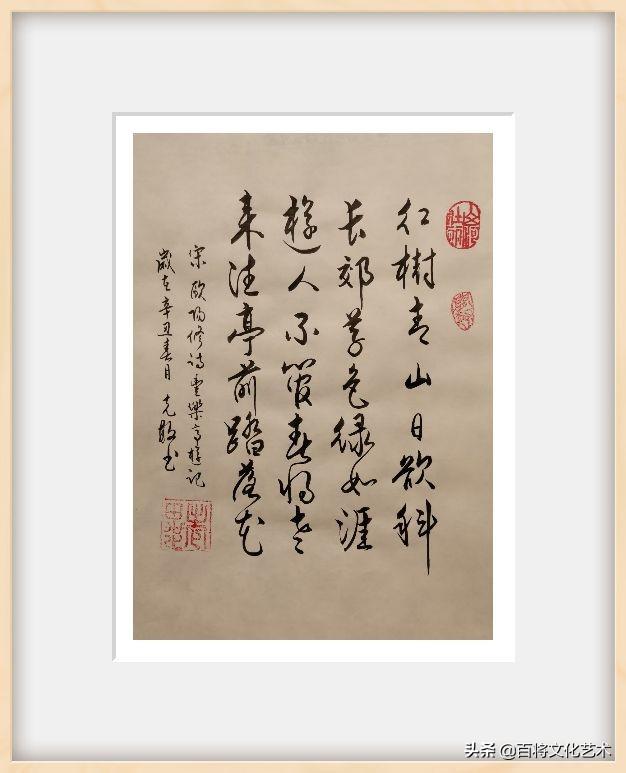 红樹青山日欲斜
长郊草色绿如涯
遊人不管春将老
来往亭前踏落花
宋欧阳修诗豊樂亭遊记
歲在辛丑春月克书
头条 @百将文化艺术